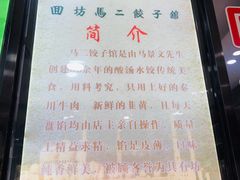 回坊馬二餃子館
简介
马二饺子馆是由马景文先生
创建 余年的酸汤水饺传统美
食，用料考究，只用上好的秦
川牛肉 新鲜的韭黄 且每天
都馅均由店主亲自操作，质量
上精益求精！馅是皮薄
纯香鲜美